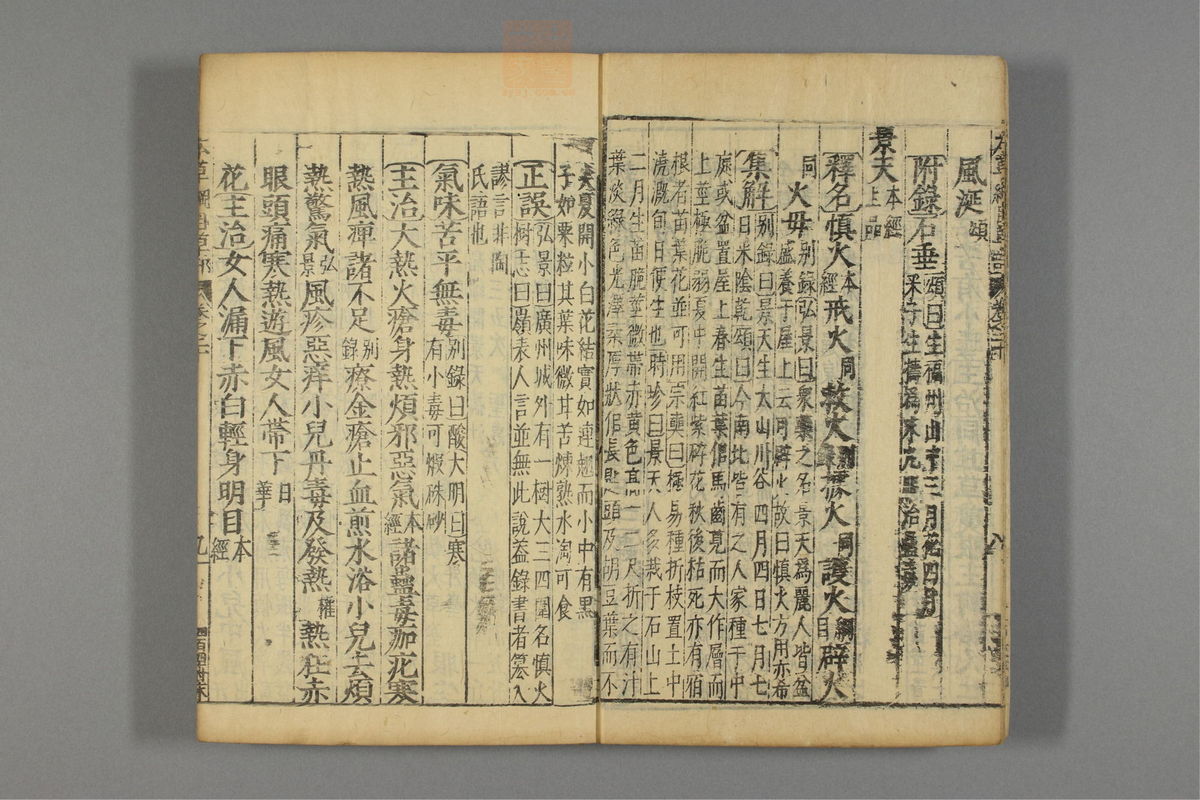 風涎頌
附錄石垂頌曰生福州山中三月花四月
采子生擣為末丸服治蠱毒
景天本經
上品
釋名慎火本經戒火同救火別錄據火同護火綱目辟火
同火母別錄弘景曰衆藥之名景天為麗人皆盆
盛養于屋上云可辟火故曰慎火方用亦希
集解別錄曰景天生太山川谷四月四日七月七
日采陰乾頌曰今南北皆有之人家種于中
庭或盆置屋上春生苗葉似馬齒莧而大作層而
上莖極脆弱夏中開紅紫碎花秋後枯死亦有宿
根者苗葉花並可用宗奭曰極易種折枝置土中
澆溉旬日便生也時珍曰景天人多栽于石山上
二月生苗脆莖微帶赤黄色高一二尺折之有汁
葉淡綠色光澤柔厚狀似長匙頭及胡豆葉而不
尖夏開小白花結實如連翹而小中有黑
子如粟粒其葉味微甘苦煠熟水淘可食
正誤弘景曰廣州城外有一樹大三四圍名慎火
樹志曰嶺表人言並無此說蓋錄書者篡入
謬言非陶
氏語也
氣味苦平無毒別錄曰酸大明曰寒
有小毒可煅硃砂
主治大熱火瘡身熱煩邪惡氣本經諸蠱毒痂疕寒
熱風痺諸不足別錄療金瘡止血煎水浴小兒去煩
熱驚氣弘景風疹惡痒小兒丹毒及發熱權熱狂赤
眼頭痛寒熱遊風女人帶下日華
花主治女人漏下赤白輕身明目本經